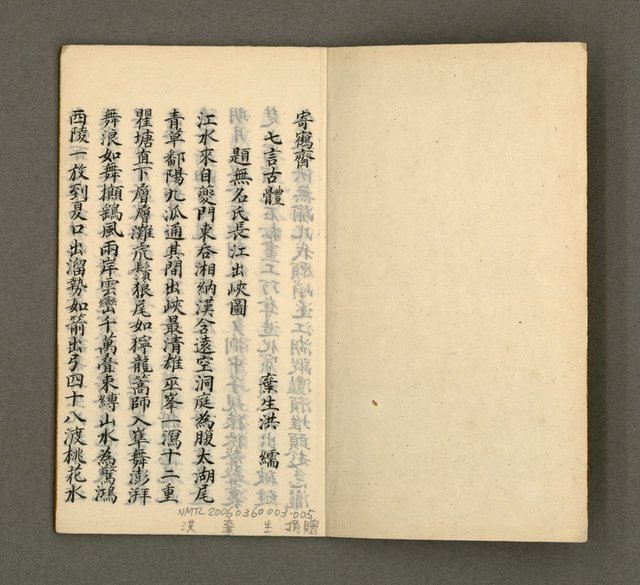 寄鶴齋
七言古體 棄生洪繻
題無名氏長江出峽圖
江水來自夔門東吞湘納漢含遠空洞庭為腹太湖尾
青草鄱陽九派通其間出峽最清雄巫峯一瀉十二重
瞿塘直下層層灘虎鬚狼尾如獰龍篙師入窂舞澎湃
舞浪如舞擷鷁風兩岸雲巒千萬疊束縛山水為驚鴻
西陵一放到夏口出溜勢如箭出弓四十八渡桃花水
NMTL20060360003-005
漢 棄生捐贈